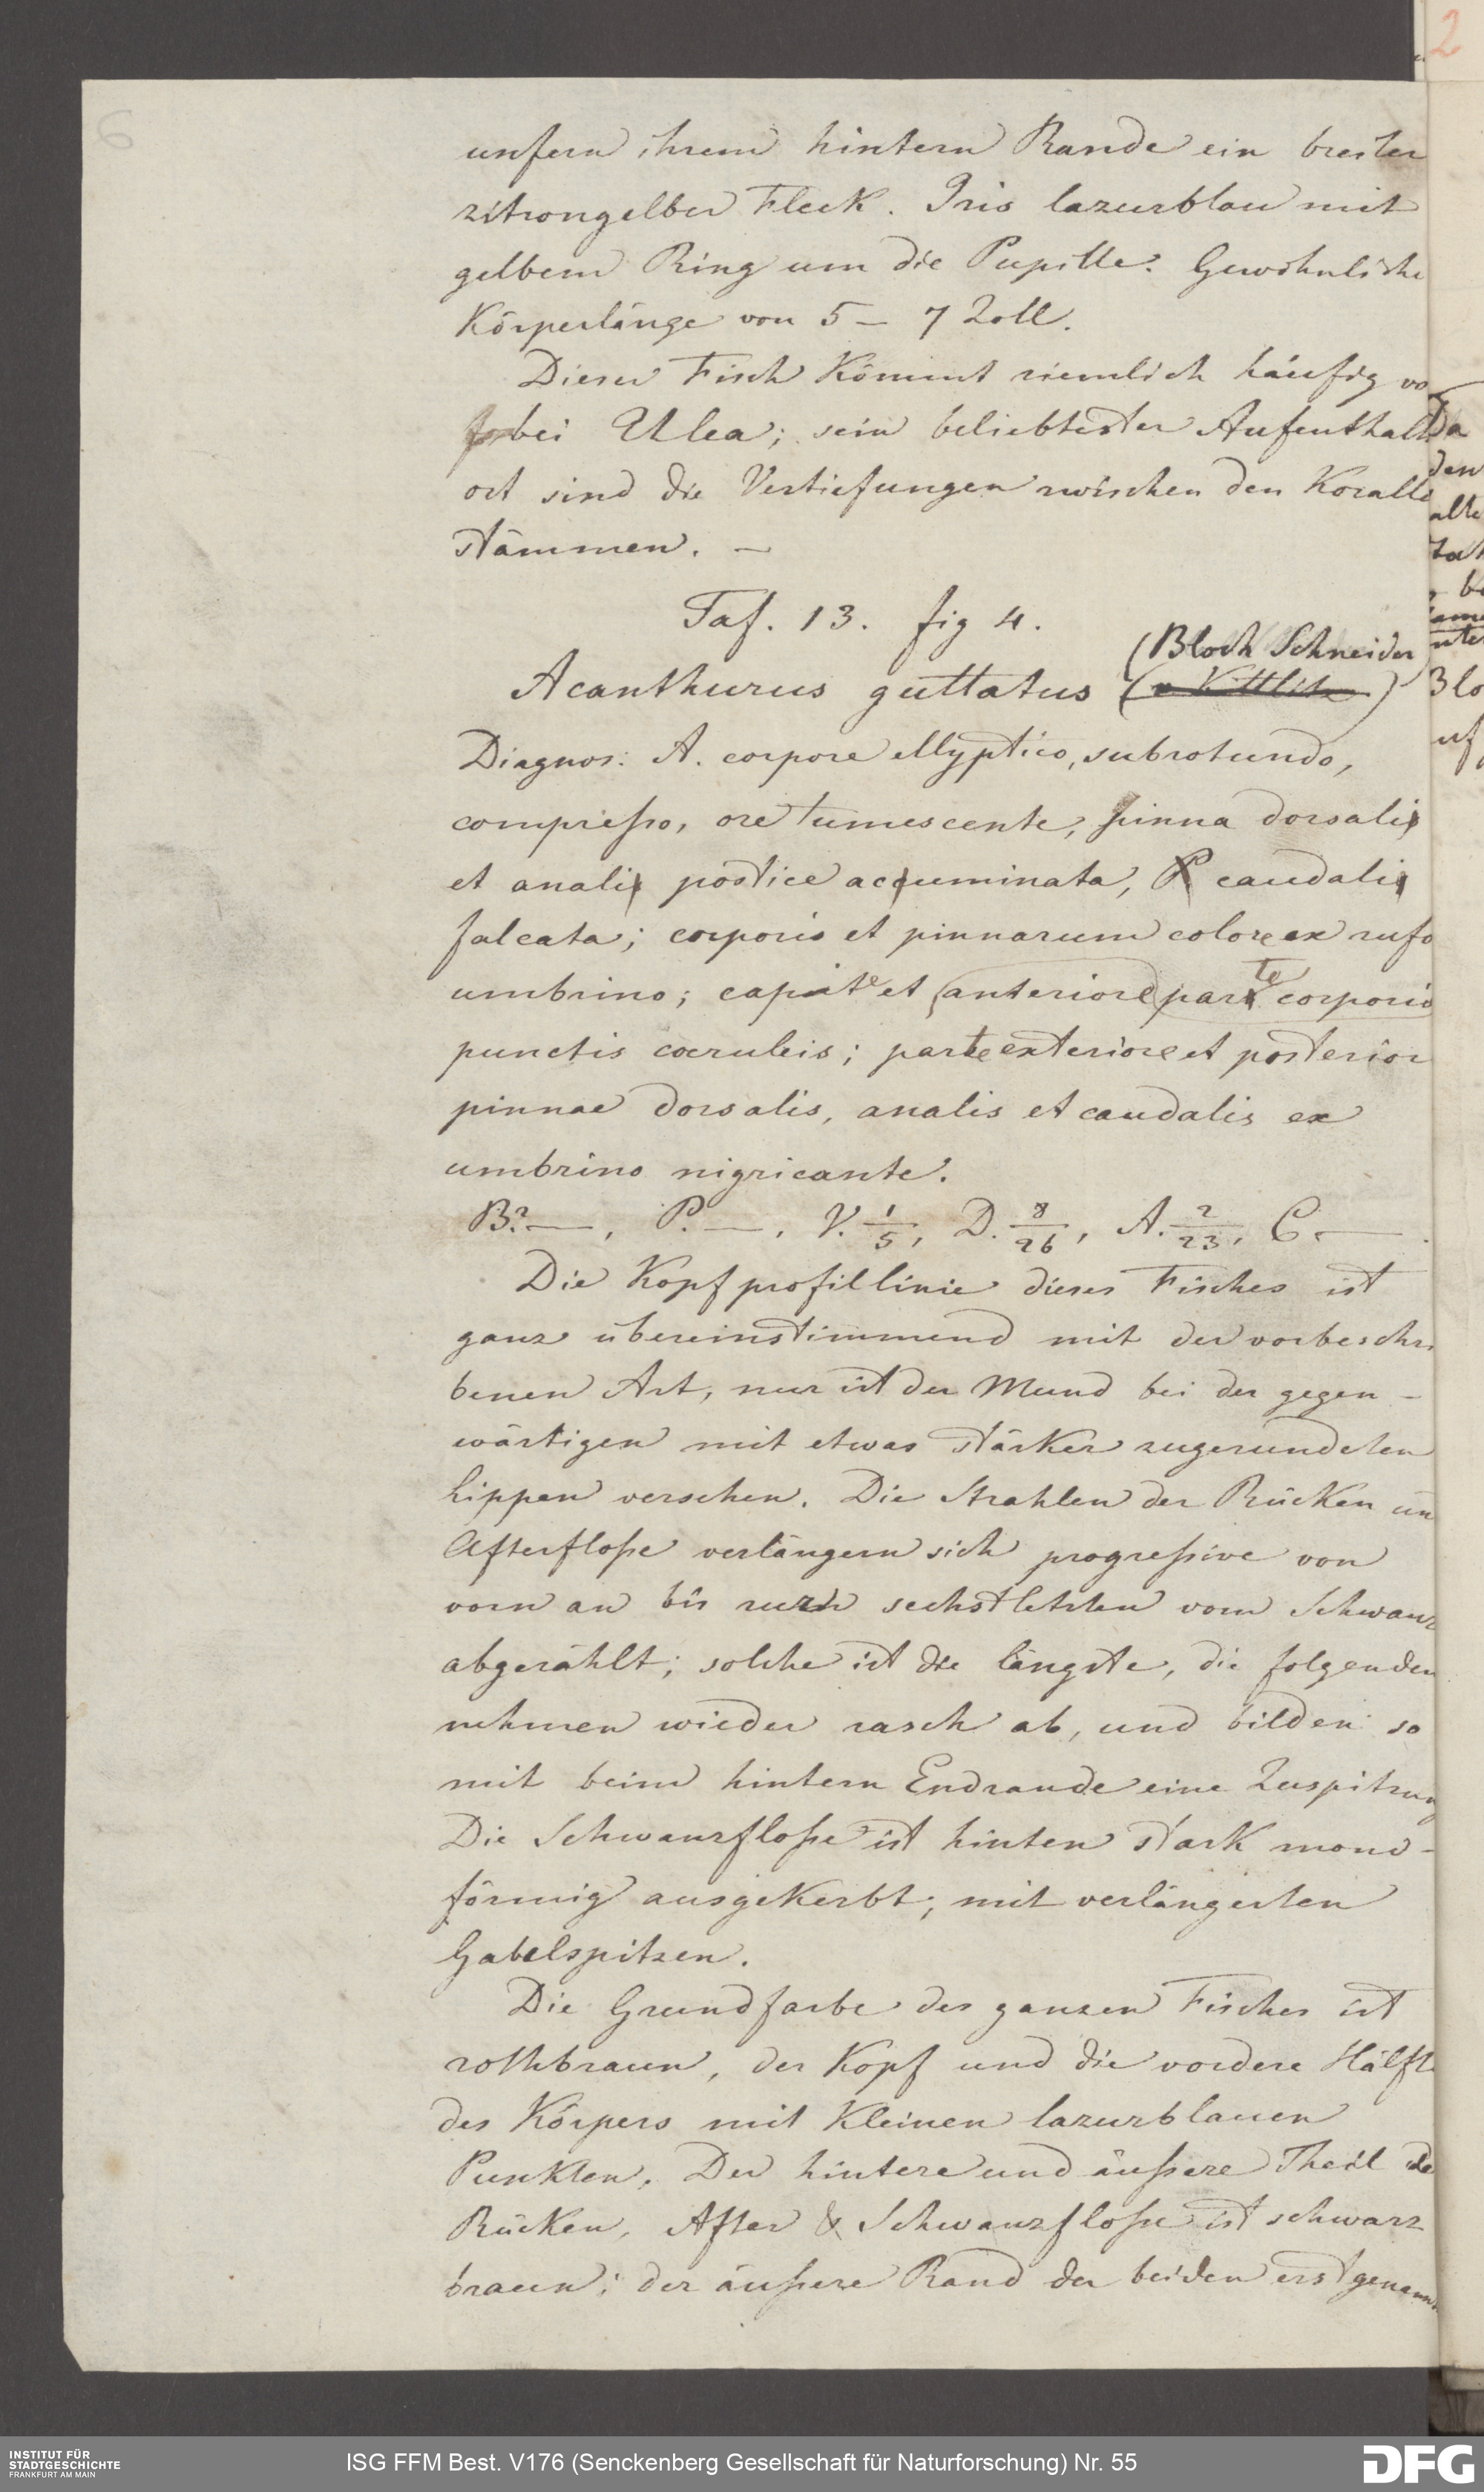 6
2
unfern ihrem hintern Rande ein breiter
zitrongelber Fleck. Iris lazurblau mit
gelbem Ring um die Pupille. Gewöhnliche
Körperlänge von 5 – 7 Zoll.
Dieser Fisch kömmt ziemlich häufig vo
bei Ulea; sein beliebtester Aufenthalts
ort sind die Vertiefungen zwischen den Koralle
stämmen. –
Taf. 13. fig 4.
(Bloch Schneider
Acanthurus guttatus (v Kittlitz)
Diagnos: A. corpore ellyptico, subrotundo,
compresso, ore tumescente, pinna dorsali
et anali postice acuminata, caudali
falcata; corporis et pinnarum colore ex rufo
umbrino; capite et anteriore parte corporis
punctis cœruleis; parte exteriore et posterior
pinnae dorsalis, analis et caudalis ex
umbrino nigricante.
B? —, P. —, V. 1/5, D. 8/26, A. 2/23, C —.
Die Kopfprofillinie dieses Fisches ist
ganz übereinstimmend mit der vorbeschri
benen Art, nur ist der Mund bei der gegen-
wärtigen mit etwas stärker zugerundeten
Lippen versehen. Die Strahlen der Rücken un
Afterflosse verlängern sich progressive von
vorn an bis zum sechstletzten vom Schwanz
abgezählt; solche ist die längste, die folgenden
nehmen wieder rasch ab, und bilden so
mit beim hintern Endrande eine Zuspitzung
Die Schwanzflosse ist hinten stark mond-
förmig ausgekerbt; mit verlängerten
Gabelspitzen.
Die Grundfarbe des ganzen Fisches ist
rothbraun, der Kopf und die vordere Hälfte
des Körpers mit kleinen lazurblauen
Punkten. Der hintere und äussere Theil de
Rücken, After & Schwanzflosse ist schwarz
braun; der äussere Rand der beiden erstgenann
INSTITUT FÜR
STADTGESCHICHTE
FRANKFURT AM MAIN
ISG FFM Best. V176 (Senckenberg Gesellschaft für Naturforschung) Nr. 55
DFG